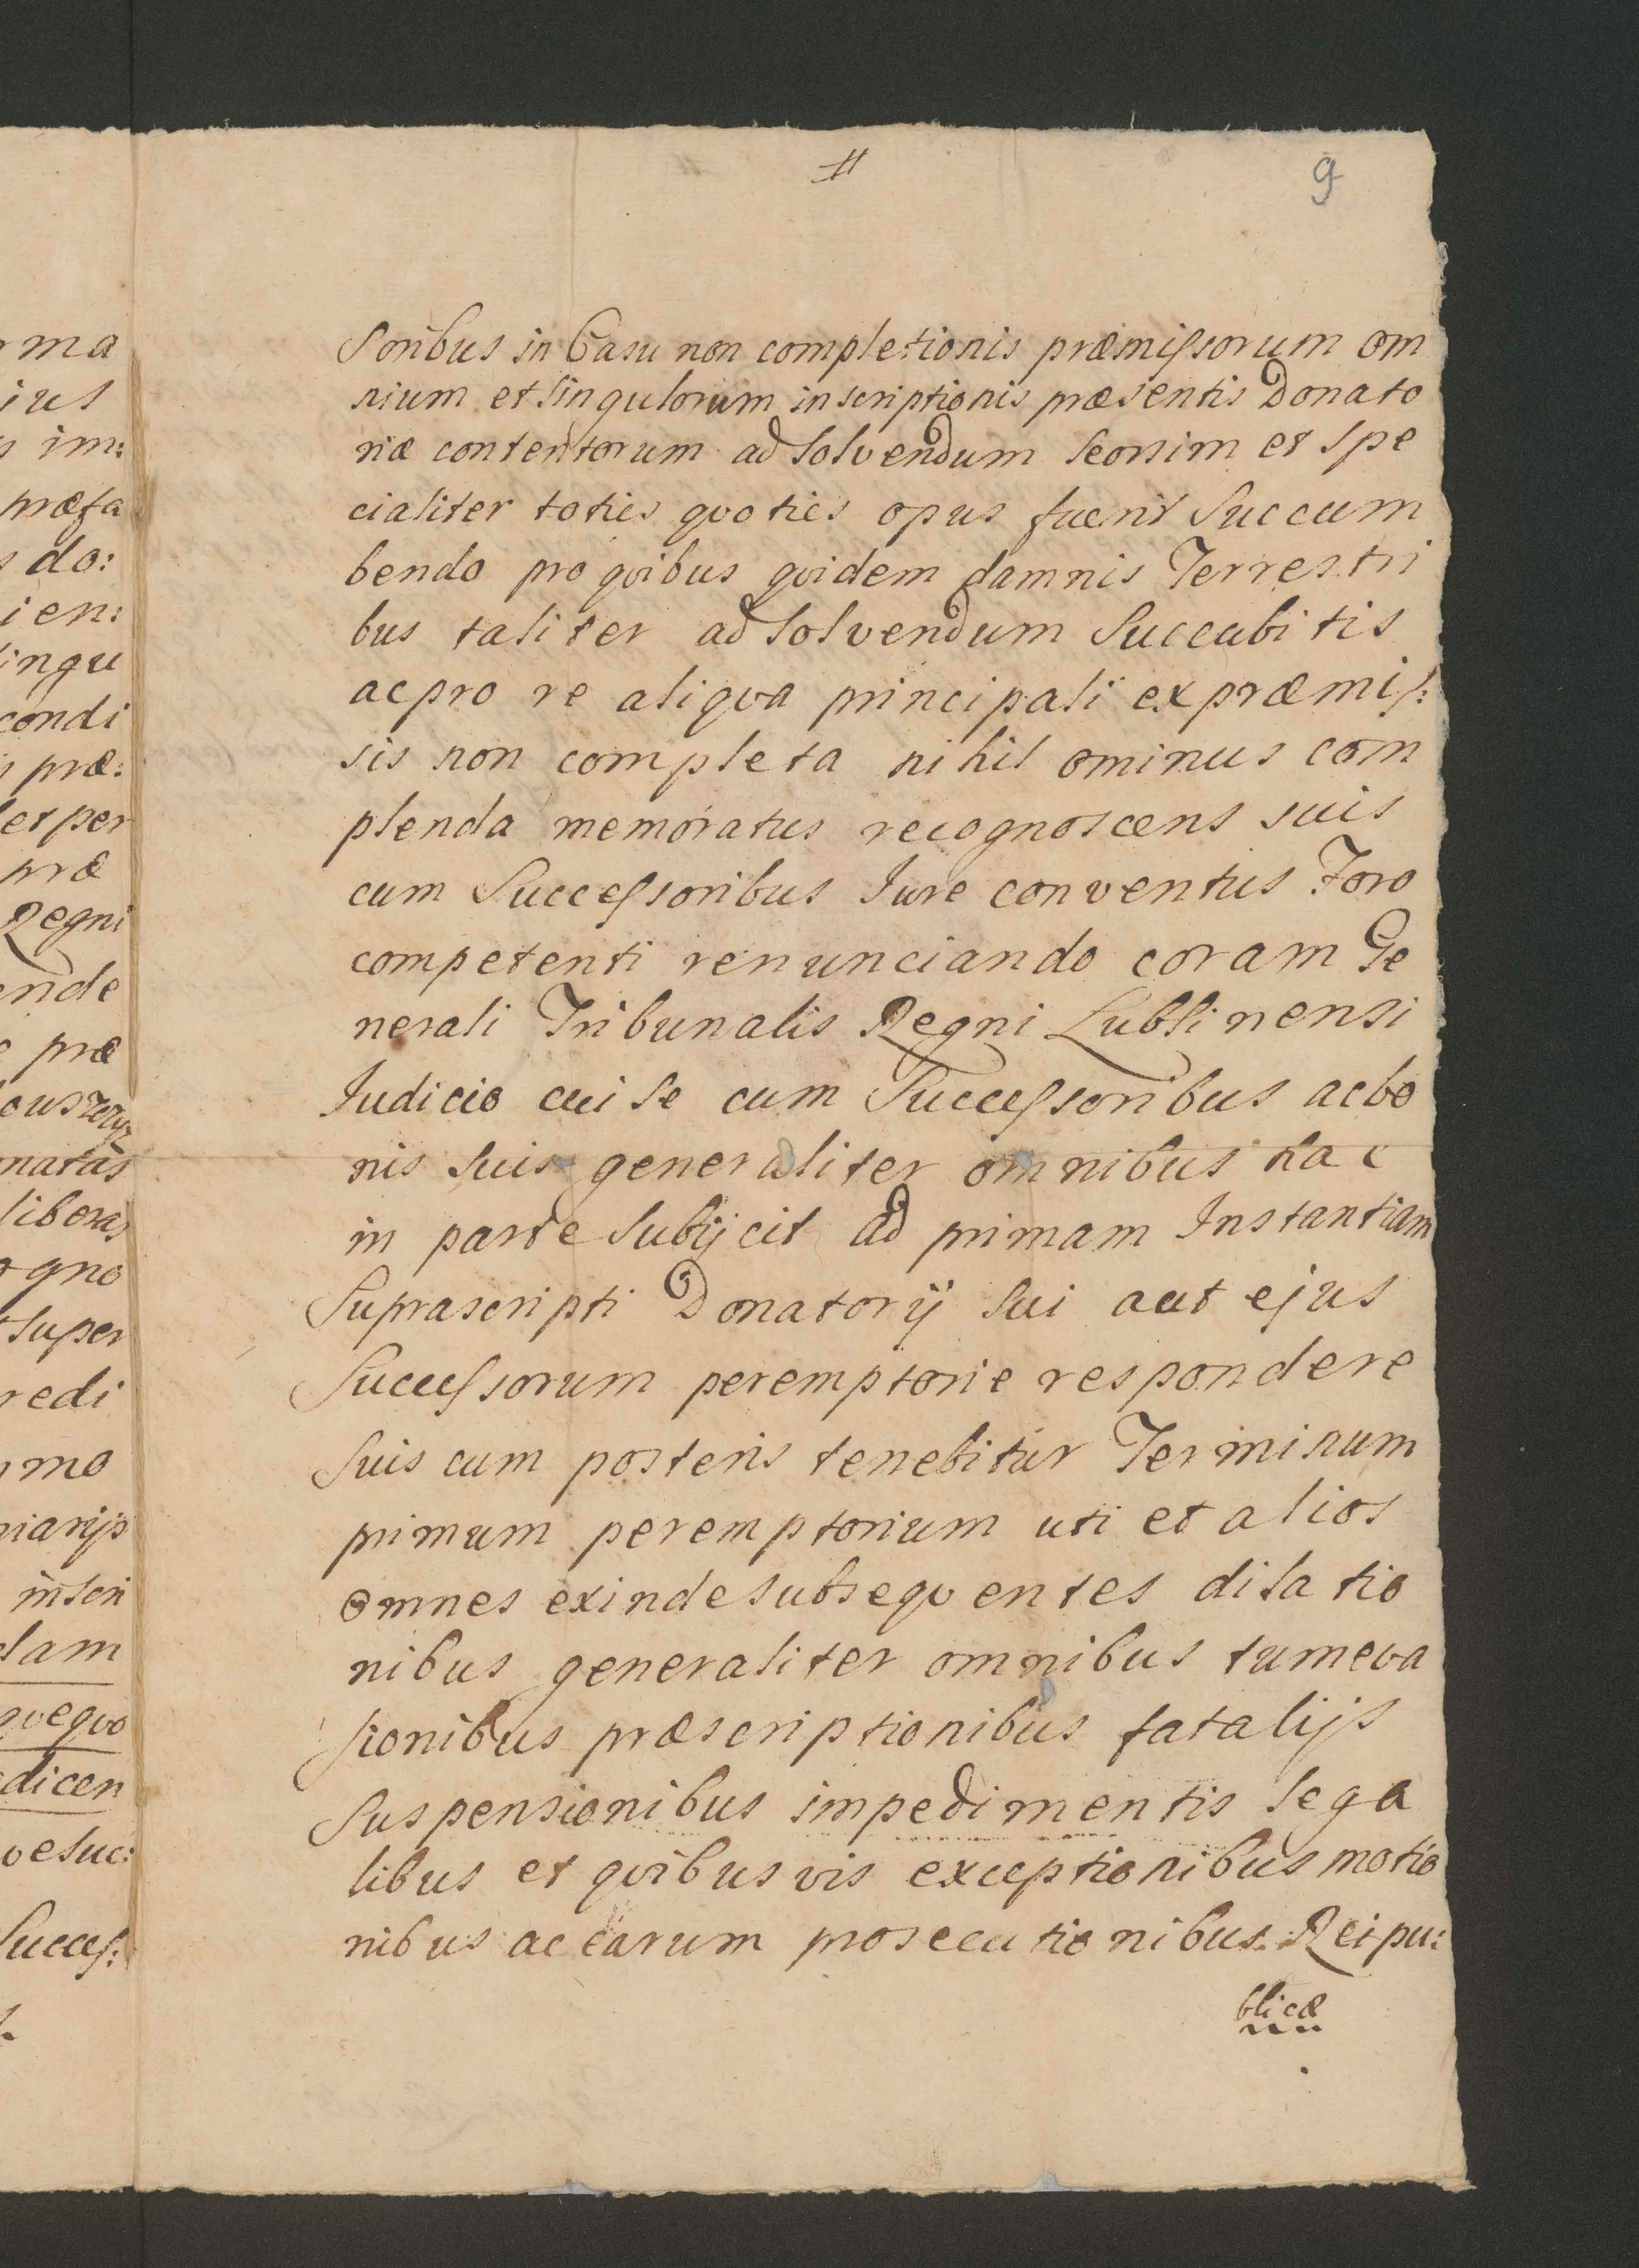 9
soribus in Casu non completionis præmissorum om
nium et singulorum inscriptionis præsentis Donato
riæ contentorum ad solvendum seorsim et spe
cialiter toties qvoties opus fuerit succum
bendo pro qvibus qvidem damnis Terrestri
bus taliter ad solvendum succubitis
ac pro re aliqva principali ex præmis:
sis non completa nihil ominus com
plenda memoratus recognoscens suis
cum Successoribus Iure conventus Foro
competenti renunciando coram Ge
nerali Tribunalis Regni Lublinensi
Iudicio cui se cum Successoribus ac bo
nis suis generaliter omnibus hac
in parte subijcit ad primam Instantiam
Suprascripti Donatorij sui aut ejus
Successorum peremptorie respondere
suis cum posteris tenebitur Terminum
primum peremptorium uti et alios
omnes exinde subseqventes dilatio
nibus generaliter omnibus tum eva
sionibus præscriptionibus fatalijs
suspensionibus impedimentis lega
libus et qvibusvis exceptionibus motio
nibus ac earum prosecutionibus Reipu:
blicæ
ma
ius
im:
præfa
do:
ien:
singu
condi
præ:
et per
præ
Regni
ende
præ
natas
liberas
ogno
super
redi
mo
niarijs
inscri
dam
qveqvo
dicen
ve suc:
Succes: